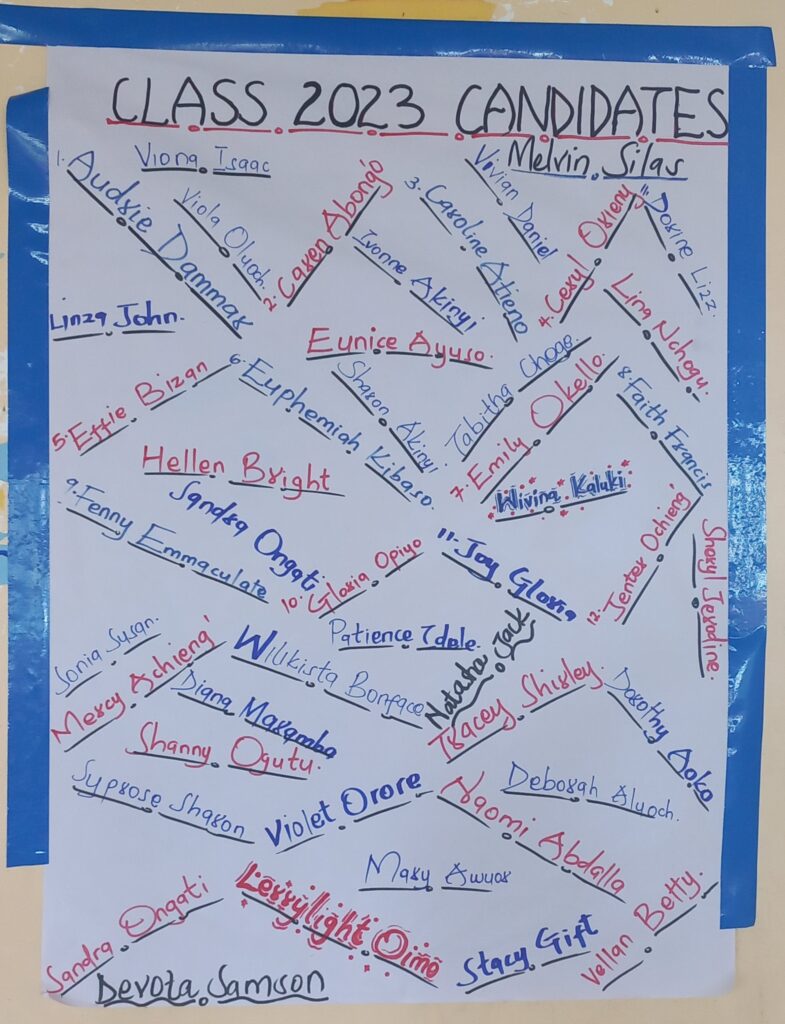 CLASS 2023 CANDIDATES
Viona Isaac
Melvin Silas
1. Audrie Dammar
Viola Oluoch.
2. Caren Abongó
Ivonne Akinyi
3. Caroline Atieno
Vivian Daniel
4. Ceryl Okieny
11. Dorine Lizz.
Linza John.
Eunice Ayuso.
Lina Nchogu.
5. Effie Bizan
6. Euphemiah Kibaso.
Sharon Akinyi
Tabitha Choge.
7. Emily Okello.
8. Faith Francis
Hellen Bright
Wivina Kaluki
9. Fenny Emmaculate
Sandra Ongati
10. Gloria Opiyo
11. Joy Gloria
12. Jenter Ochieng'
Sharyl Jeradine.
Sonia Susan.
Mercy Achieng'
Willkista Bonface
Patience Idole.
Natasha Jack
Diana Maramba
Tracey Shirley.
Dorothy Aoko
Shanny Ogutu.
Syprose Sharon
Violet Orore
Naomi Abdalla
Deborah Aluoch.
Mary Awuor
Sandra Ongati
Lerrylight Oimo
Stacy Gift
Vellan Betty.
Devota Samson